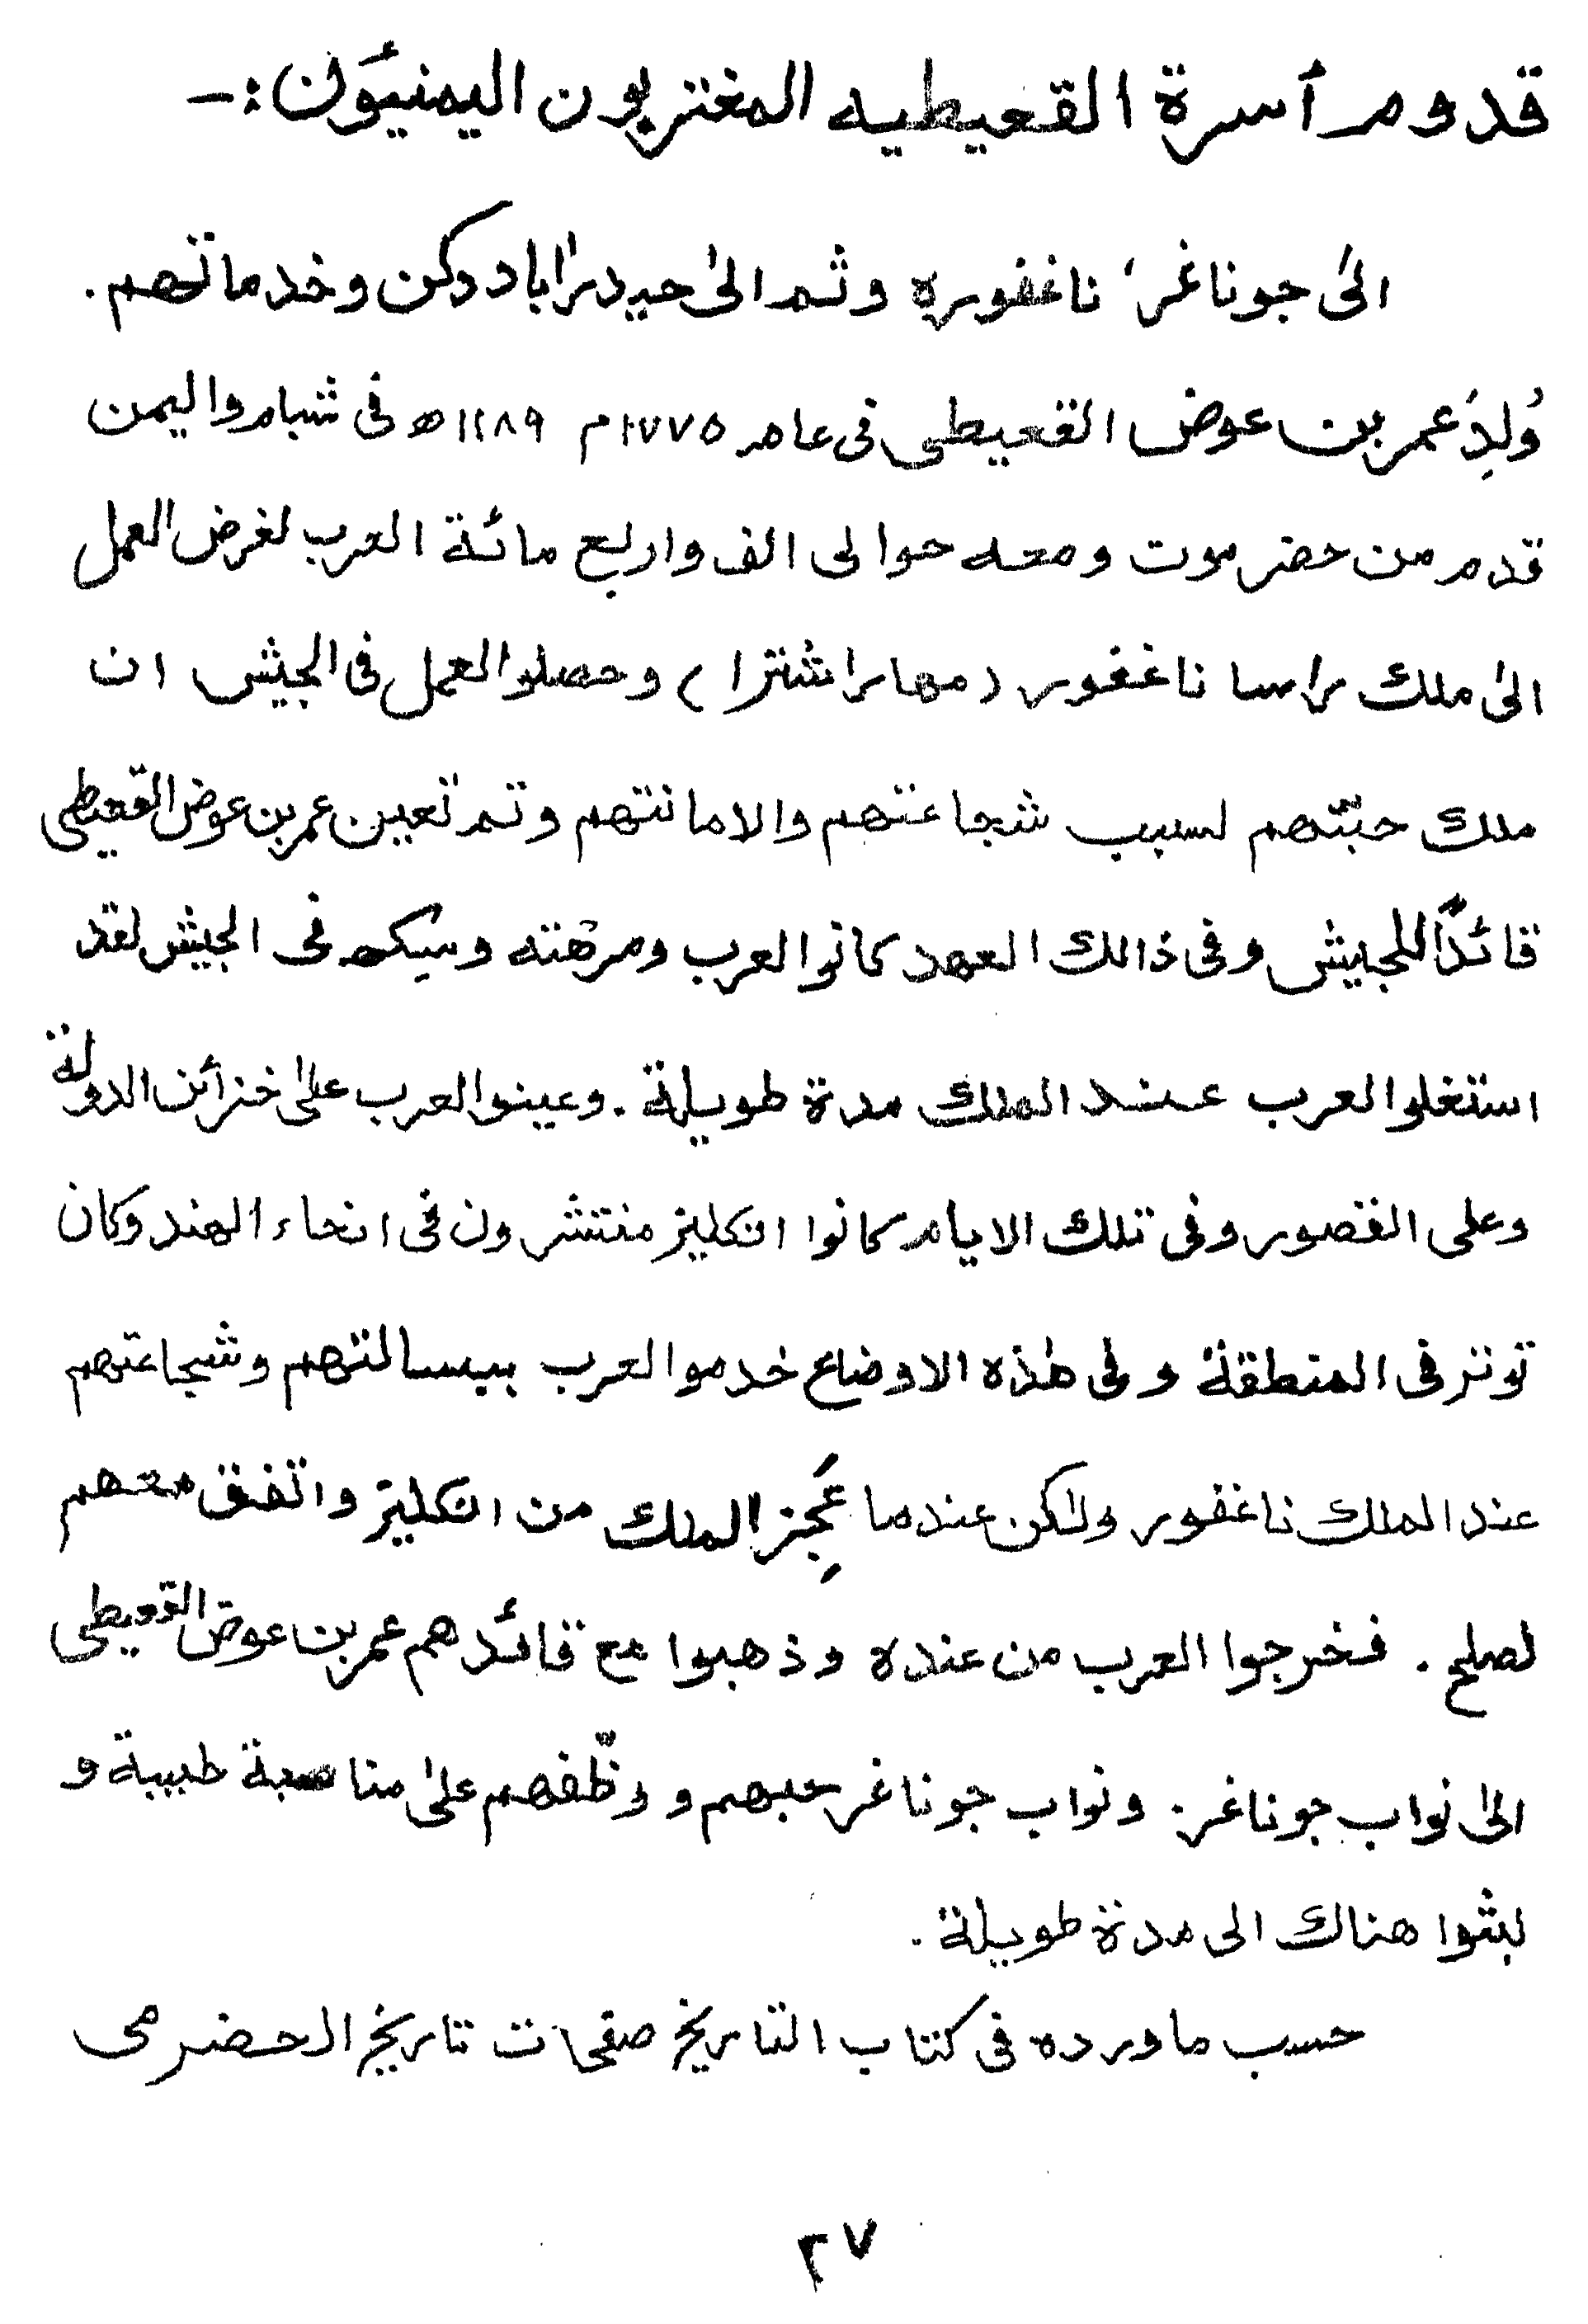 قدوم أسرة القعيطيه المغتربون اليمنيَون :-
الىٰ جوناغر، ناغفوره وثم الىٰ حيدراباد دكن وخدماتهم.
وُلِدُ عمر بن عوض القعيطى فى عام ١٧٧٥م ١١٨٩ھ فى شبام واليمن
قدم من حضرموت ومعه حوالى الف واربع مائة العرب لغرض العمل
الىٰ ملك راسا ناغفور (مهاراشترا) وحصلوا العمل فى الجيش ان
ملك حبتّهم لسبب شجاعتهم والامانتهم وتم تعين عمر بن عوض القعيطى
قائدًا للجيش وفى ذالك العهد كانوا العرب ومرهته وسيكھ فى الجيش لقد
استغلوا العرب عند الملك مدة طويلة. وعينوا العرب علىٰ خزائن الدولة
وعلى القصور وفى تلك الايام كانوا انكليز منتشرون فى انحاء الهند وكان
توتر فى المنطقة وفى هٰذه الاوضاع خدموا العرب ببسالتهم وشجاعتهم
عند الملك ناغفور ولٰكن عندما عَجِز الملك من انكليز واتفق معهم
لصلح. فخرجوا العرب من عنده وذهبوا مع قائدهم عمر بن عوض القعيطى
الىٰ نواب جوناغر. ونواب جوناغر حبهم و وظّفهم علىٰ مناصبة طيبة و
لبثوا هناك الى مدة طويلة.
حسب ما ورده فى كتاب التاريخ صفحات تاريخ الحضرمى
٢٧